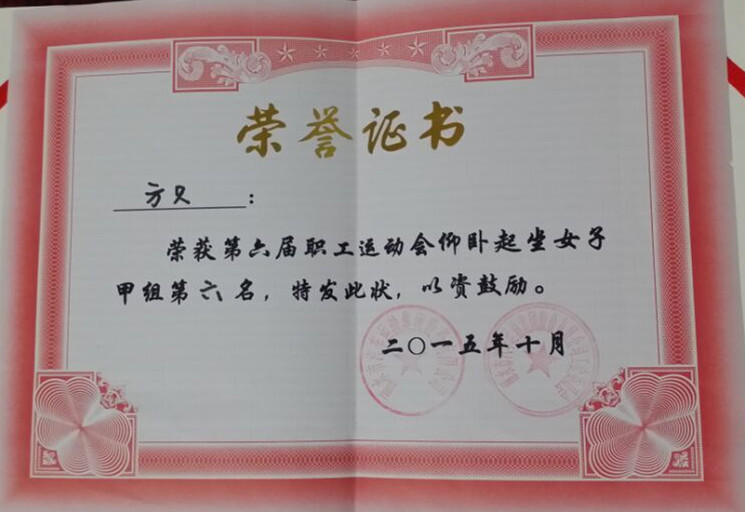 荣誉证书
方只：
荣获第六届职工运动会仰卧起坐女子
甲组第六名，特发此状，以资鼓励。
二〇一五年十月